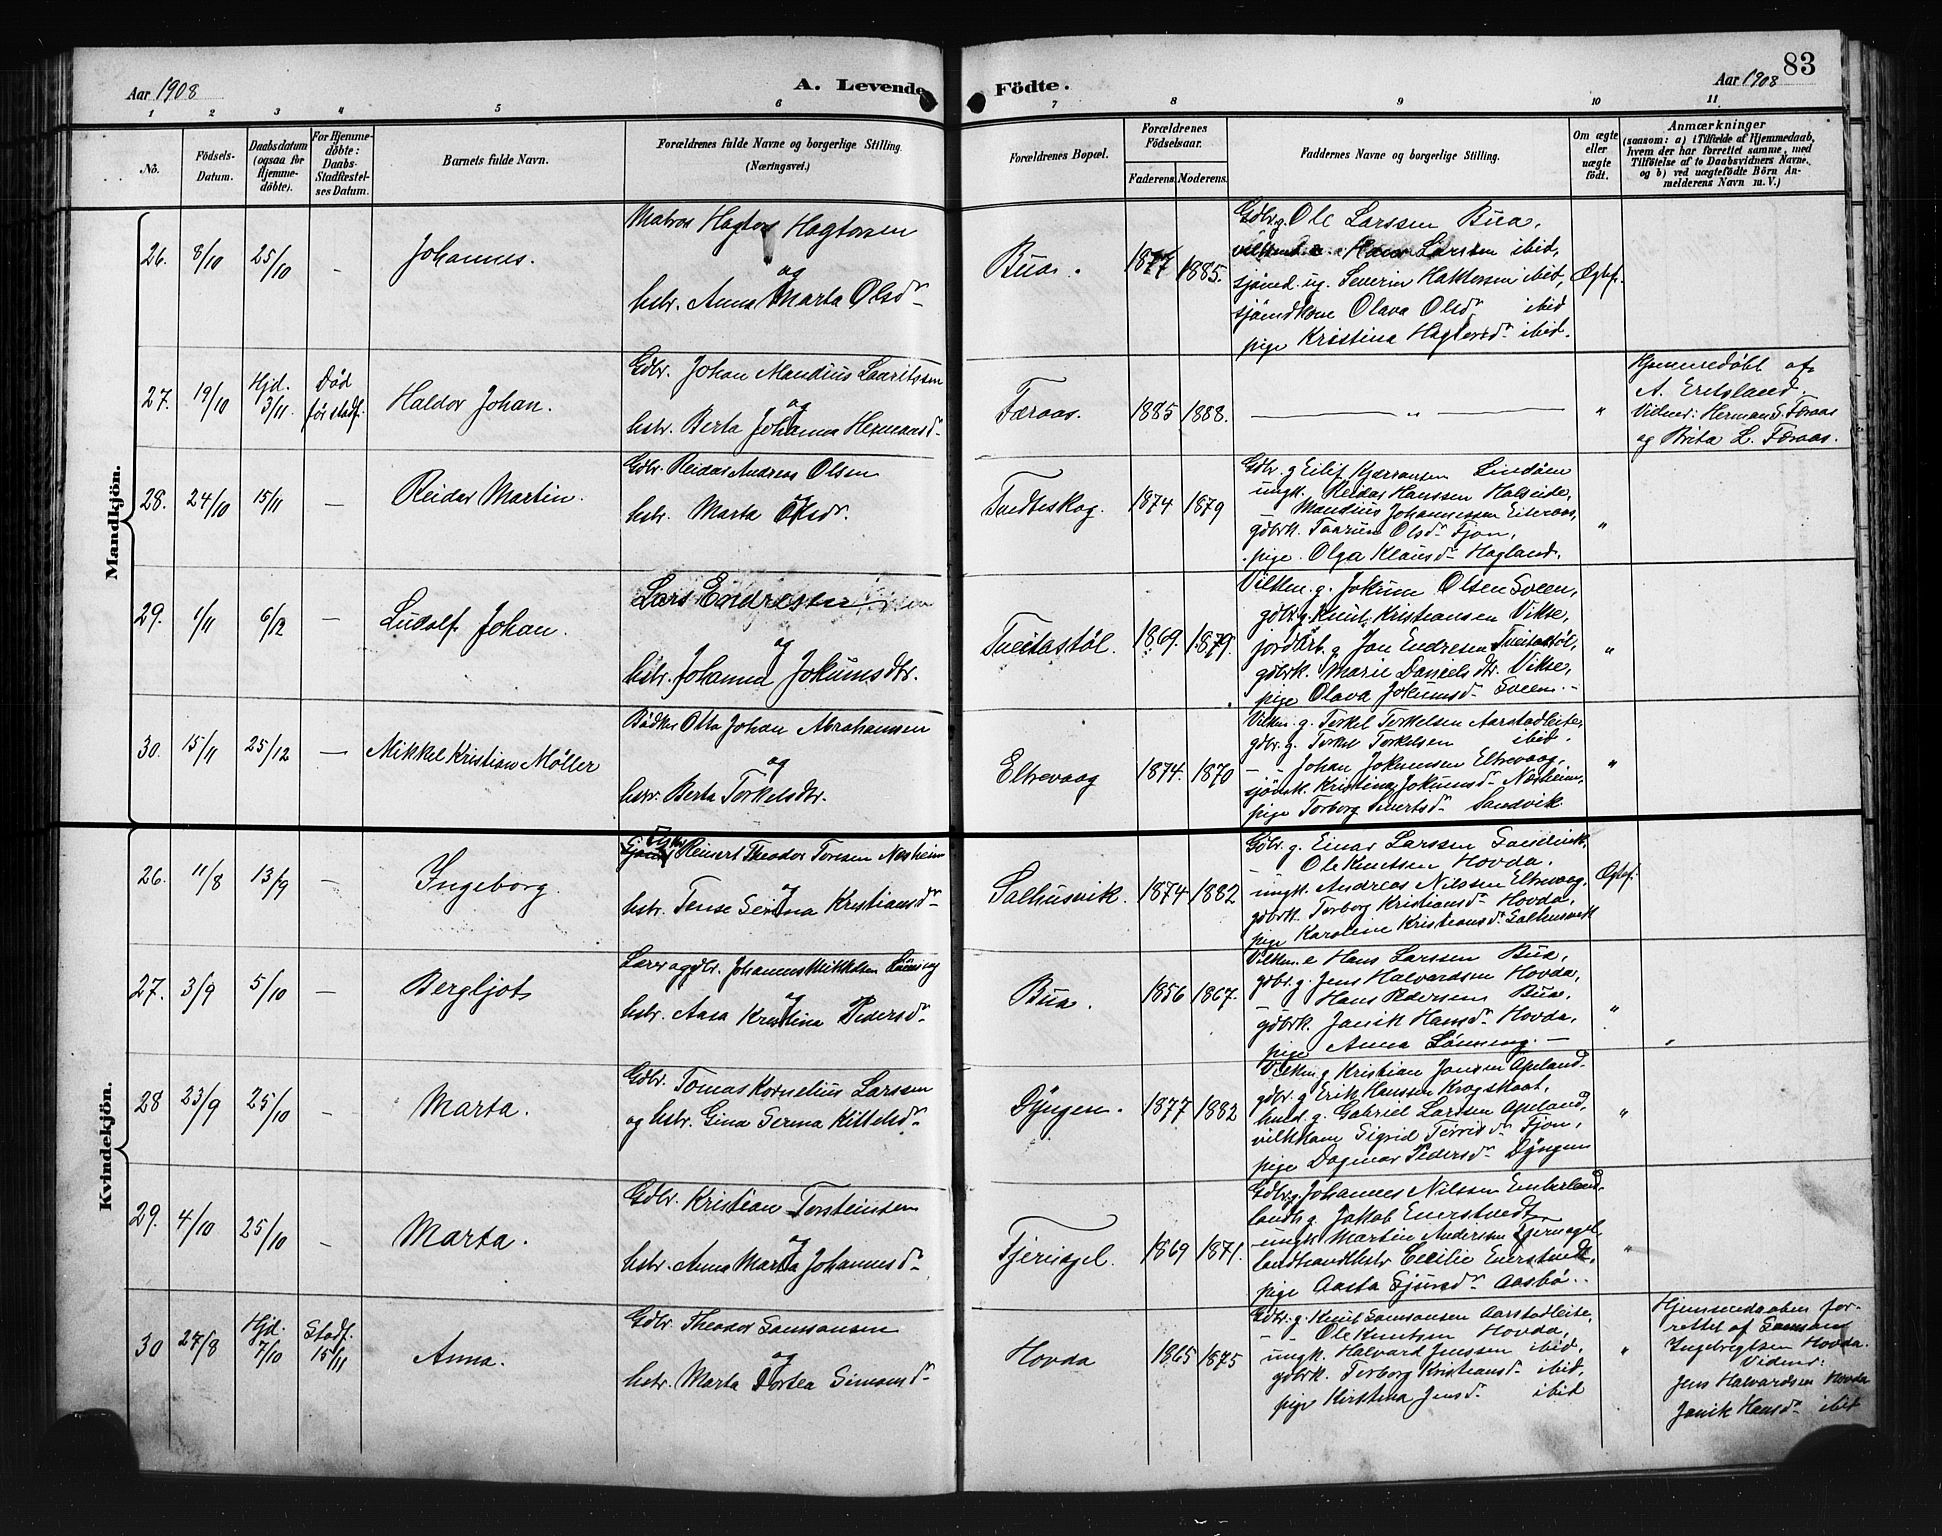 83
Aar 1908
A. Levende
Födte.
Aar 1908
1 2 3 4 5 6 7 8 9 10 11
No.
Födsels-
Datum.
Daabsdatum
(ogsaa for
Hjemme-
döbte).
For Hjemme-
döbte:
Daabs-
Stadfæstel-
ses Datum.
Barnets fulde Navn.
Forældrenes fulde Navne og borgerlige Stilling.
(Næringsvei.)
Forældrenes Bopæl.
Forældrenes
Födselsaar.
Faderens. Moderens.
Faddernes Navne og borgerlige Stilling.
Om ægte
eller
uægte
født.
Anmærkninger
(saasom: a) i Tilfælde af Hjemmedaab,
hvem der har forrettet samme, med
Tilföielse af to Daabsvidners Navne,
og b) ved uægtefödte Börn An-
melderens Navn m. V.)
Mandkjön.
26. 8/10 25/10 – Johannes.
Matros Hagtor Hagtorsen
og
hstr. Anna Marta Olsdr
Bua. 1877 1885.
Gdbr. g. Ole Larssen Bua,
Hans Larssen ibid,
sjömd. ug. Severin Haktorsen ibid,
sjömdkone Olava Olsdr ibid
pige Kristina Hagtorsdr ibid.
Ægtef.
27. 19/10 Hjd. 3/11. Død før stadf. Haldor Johan.
Gdbr. Johan Mandius Lauritssen
og
hstr. Berta Johanna Hermansdr
Færaas. 1885 1888.
— „ —
„
Hjemmedøbt af
A. Eritsland
Vidner: Herman S. Færaas
og Brita L. Færaas.
28. 24/10 15/11 – Reidar Martin.
Gdbr. Reidar Andreas Olsen
og
hstr. Marta Olsdr.
Tvedteskog. 1874 1879
Gdbr. g Eilif Lindöen
ungk. Reidar Hanssen Halseide,
– Mandius Johannessen Eiteraas,
gdbrk. Taarun Olsdr Fjon,
pige. Olga Klausdr Hagland.
„
29. 1/11 6/12 – Ludolf Johan.
Lars Endresen
og
hstr. Johanna Jokumsdtr.
Tveitastøl. 1869. 1879.
Vilkm. g. Jokum Olsen Sveen,
gdbr. g. Knut Kristiansen Vikse,
jordarb. g Jon Endresen Tveitastöl,
gdbrk. Marie Danielsdtr. Vikse,
pige Olava Jokumsdr Sveen. –
„
30. 15/11 25/12 – Mikkel Kristian Møller
Bødker Otto Johan Abrahamsen
og
hstr. Berta Torkelsdtr.
Eltrevaag 1874. 1870
Vilkm. g. Torkel Torkelsen Aarstadleite,
gdbr. g. Torkel Torkelsen ibid.
– – Johan Jokumsen Eltrevaag,
sjömk. Kristina Jokumsdr Næsheim,
pige Torborg Sivertsdr Sandvik
„
Kvindekjön.
26. 11/8 13/9 – Ingeborg.
Reinert Theodor Toresen Nesheim
og
hstr. Terese Serina Kristiansdr
Salhusvik. 1874 1882
Gdbr. g. Einar Larssen Sandvik,
– Ole Knutsen Hovda,
ungk. Andreas Nilssen Eltrevaag,
gdbrk. Torborg Kristiansdr Hovda,
pige Karoline Kristiansdr Salhusvik
Ægtef.
27. 3/9 5/10 – Bergljot
Lærer og gdbr. Johannes Mikkelsen Lönning
og
hstr. Aasa Kristina Pedersdr
Bua. 1856 1867.
Vilkm. e Hans Larssen Bua,
gdbr. g. Jens Halvardsen Hovda,
– Hans Pedersen Bua,
gdbrk. Janik Hansdr Hovda,
pige Anna Lönning. –
„
28 23/9 25/10 – Marta.
Gdbr. Tomas Kornelius Larssen
og hstr. Gina Serina Kittelsdr
Dyngen. 1877 1882
Vilkm. g Kristian Jonsen Apeland.
gdbr. g Erik Hanssen Krogskaat,
husd. g. Gabriel Larssen Apeland,
vilkkone Sigrid Terrisdr Fjon,
pige Dagmar Pedersdr Dyngen
„
29. 4/10 25/10 – Marta.
Gdbr. Kristian Torsteinsen
og
hstr. Anna Marta Johannesdr
Tjernagel. 1869 1871.
Gdbr. g. Johannes Nilssen Emberland.
landh. g Jakob Enerstvedt
ungk. Martin Andersen Tjernagel,
landhandlhstr Cecilie Enerstvedt,
pige Aasta Sjursdr Aasbö..
„
30 27/8 Hjd. 7/10 Stadf. 15/11 Anna.
Gdbr. Theodor Samsonsen
og
hstr. Marta Dortea Simonsdr
Hovda 1865 1875
Gdbr. g. Knut Samsonsen Aarstadleite,
– – Ole Knutsen Hovda,
ungk. Halvard Jenssen ibid,
gdbrk. Torborg Kristiansdr ibid,
pige Kirstina Jensdr ibid
„
Hjemmedaaben for-
rettet af Samson
Ingebregtsen Hovda.
Vidner:
Jens Halvardsen Hovda
Janik Hansdr ibid